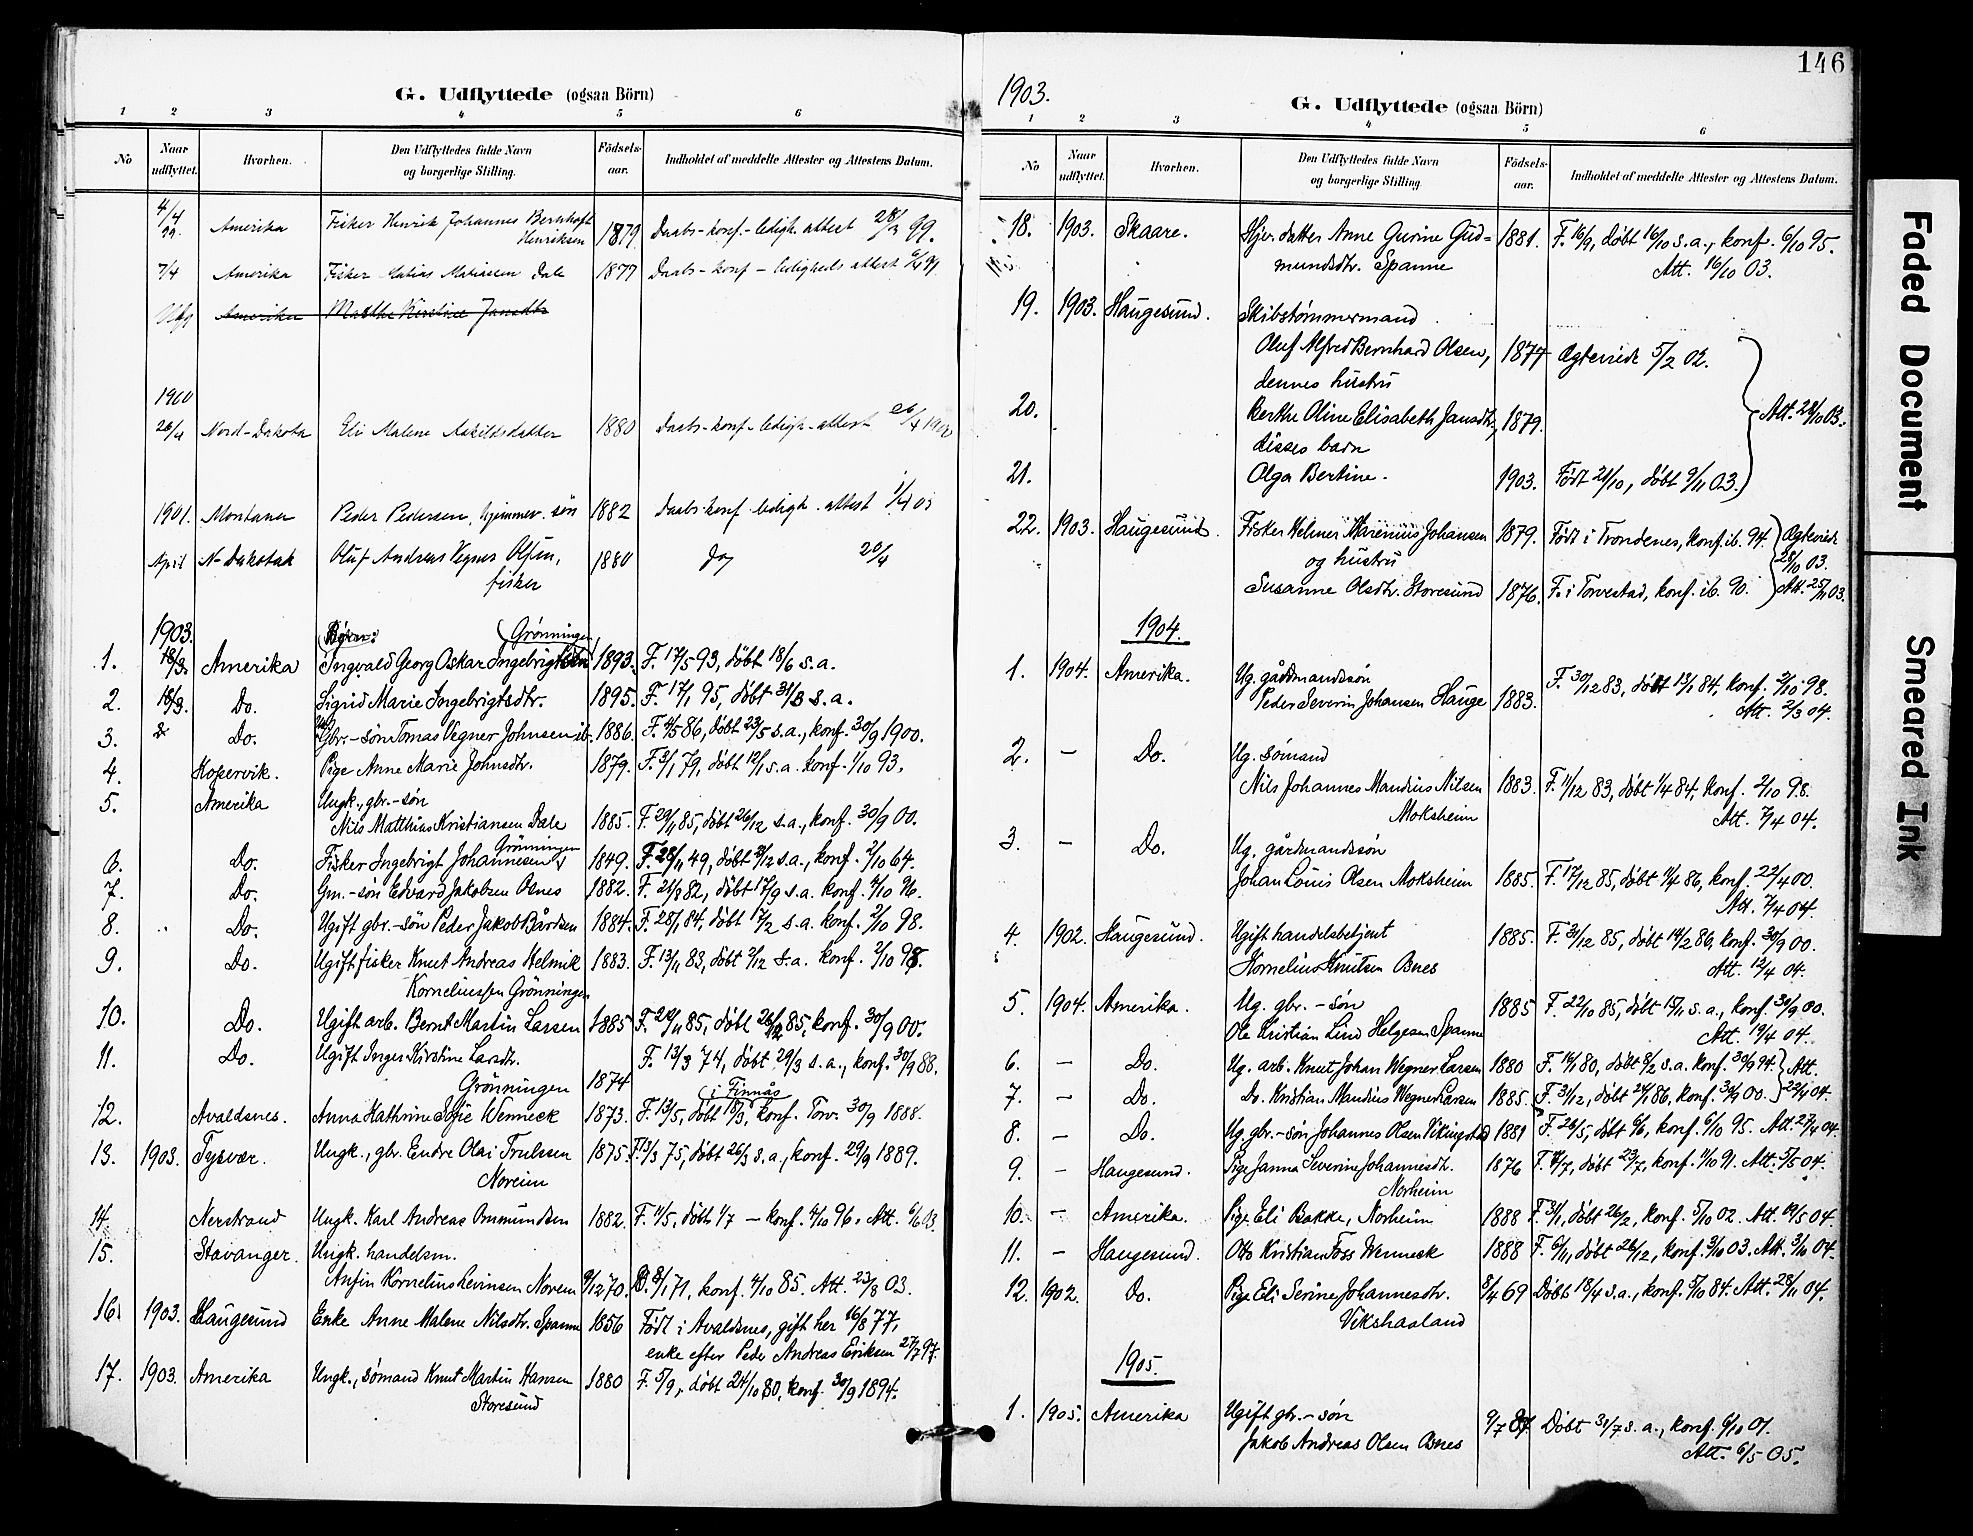 146
1903.
G. Udflyttede (ogsaa Börn)
1 2 3 4 5 6
No
Naar udflyttet.
Hvorhen.
Den Udflyttedes fulde Navn og borgerlige Stilling.
Födsels-aar.
Indholdet af meddelte Attester og Attestens Datum.
4/4 99. Amerika Fisker Henrik Johannes Bernhoft 1879. Daabs-konf.-ledigh. attest 28/3 99.
Henriksen
7/4 Amerika Fisker Matias Matiassen Dale 1877 Daabs-konf-ledigheds attest
Amerika Marthe Kirstine Jansdtr
1900
26/4 Nord-Dakota Eli Malene Askildsdatter 1880 Daabs-konf-ledigh-attest 26/4 1900
1901. Montana Peder Pedersen, hjemmev. søn 1882 Daabs-konf ledigh. attest
April N-Dakotah Oluf Andreas Vegner Olsen, 1880 Do 20/4
fisker
1903. Børn: Grönningen
1. 18/3. Amerika Ingvald Georg Oskar Ingebrigtsen 1893. F. 17/5 93, döbt 18/6 s.a.
2. 18/3. Do. Sigrid Marie Ingebrigtsdtr. 1895. F. 17/1 95, döbt 31/3 s.a.
3. Do. Gbr.-søn Tomas Vegner Johnsen ib. 1886. F. 4/5 86, döbt 23/5 s.a., konf. 30/9 1900.
4. Kopervik. Pige Anne Marie Johnsdtr. 1879. F. 3/1 79, döbt 12/1 s.a. konf. 1/10 93.
5. Amerika Ungk., gbr.-søn
Nils Matthias Kristiansen Dale 1885. F. 29/11 85, döbt 26/12 s.a., konf. 30/9 00.
Grönningen
6. Do. Fisker Ingebrigt Johannesen 1849. F. 28/11 49, döbt 31/12 s.a., konf. 2/10 64.
7. Do. Gm.-søn Edvard Jakobsen Osnes 1882. F. 21/8 82, döbt 17/9 s.a. konf. 4/10 96.
8. Do. Ugift gbr.-søn Peder Jakob Bårdsen 1884. F. 28/1 84, döbt 17/2 s.a. konf. 2/10 98.
9. Do. Ugift fisker Knut Andreas Helmik 1883. F. 13/11 83, döbt 2/12 s.a. konf. 2/10 98.
Korneliussen Grönningen
10. Do. Ugift arb. Bernt Martin Larsen 1885 F. 20/11 85, döbt 26/12 85, konf. 30/9 00.
11. Do. Ugift Inger Kirstine Larsdtr. F. 13/3 74, döbt 29/3 s.a., konf. 30/9 88.
Grönningen 1874
i Finnås
12. Avaldsnes. Anna Kathrine Sofie Wenneck 1873. F. 13/5, döbt 18/5, konf. Torv. 30/9 1888.
13. 1903. Tysvær. Ungk., gbr. Endre Olai Trulssen 1875. F. 3/3 75, döbt 26/3 s.a., konf. 29/9 1889.
Noreim
14. Nerstrand Ungk. Karl Andreas Ommundsen 1882. F. 11/5, döbt 1/7 — konf. 4/10 96. Att. 6/6 03.
15. Stavanger. Ungk. handelsm.
Anfin Kornelius Levinsen Noreim 9/12 70. D. 8/1 71, konf. 4/10 85. Att. 23/8 03.
16. 1903. Haugesund Enke Anne Malene Nilsdtr. Spanne 1856 Född i Avaldsnes, gift her 16/8 77,
enke efter Peder Andreas Eriksen 27/7 97.
17. 1903. Amerika Ungk., sømand Knut Martin Hansen 1880 F. 5/9, döbt 24/10 80, konf. 30/9 1894.
Storesund
G. Udflyttede (ogsaa Börn)
1 2 3 4 5 6
No
Naar udflyttet.
Hvorhen.
Den Udflyttedes fulde Navn og borgerlige Stilling.
Födsels-aar.
Indholdet af meddelte Attester og Attestens Datum.
18. 1903. Skaare. Hjv. datter Anne Gurine Gud= 1881. F. 16/9, döbt 16/10 s.a., konf. 6/10 95.
mundsdtr. Spanne Att. 16/10 03.
19. 1903. Haugesund. Skibstømmermand
Oluf Alfred Bernhard Olsen, 1877 Ægteviede 5/2 02.
dennes hustru
20. Berthe Oline Elisabeth Jansdtr., 1879. Att. 28/10 03.
disses barn
21. Olga Bertine. 1903. Född 21/10, döbt 9/11 03.
22. 1903. Haugesund. Fisker Helmer Marenius Johansen 1879. Född i Trondenes, konf. ib. 94. Ægteviede
og hustru 28/10 03.
Susanne Olsdtr. Storesund 1876. F. i Torvestad, konf. ib. 90. Att. 25/11 03.
1904.
1. 1904. Amerika. Ug. gårdmandssøn F. 30/12 83, döbt 13/1 84, konf. 2/10 98.
Peder Severin Johansen Hauge 1883. Att. 2/3 04.
2. — Do. Ug. sømand
Nils Johannes Mandius Nilsen 1883. F. 11/12 83, döbt 1/4 84, konf. 2/10 98.
Moksheim Att. 7/4 04.
3. — Do. Ug. gårdmandssøn
Johan Louis Olsen Moksheim 1885. F. 17/12 85, döbt 4/4 86, konf. 22/4 00.
Att. 7/4 04.
4. 1902. Haugesund. Ugift handelsbetjent 1885. F. 31/12 85, döbt 14/2 86, konf. 30/9 00.
Kornelius Knutsen Osnes Att. 12/4 04.
5. 1904. Amerika. Ug. gbr.-søn 1885 F. 22/10 85, döbt 15/11 s.a., konf. 30/9 00.
Ole Kristian Lind Helgesen Spanne Att. 19/4 04.
6. — Do. Ug. arb. Knut Johan Wegner Larsen 1880 F. 16/1 80, döbt 8/2 s.a. konf. 30/9 94. Att.
7. — Do. Do. Kristian Mandius Wegner Larsen 1885. F. 31/12, döbt 24/1 86, konf. 30/9 00. 22/4 04.
8. — Do. Ug. gbr.-søn Johannes Olsen Vikingstad 1881 F. 26/5, döbt 6/6, konf. 6/10 95. Att. 27/4 04.
9. — Haugesund. Pige Janna Severine Johannesdtr. 1876 F. 4/7, döbt 23/7, konf. 4/10 91. Att. 5/5 04.
Norheim
10. — Amerika. Pige Eli Bakke, Norheim 1888 F. 31/1, döbt 26/2, konf. 5/10 02. Att. 19/5 04.
11. — Haugesund. Otto Kristian Foss Wenneck 1888 F. 6/11, döbt 26/12, konf. 3/10 03. Att. 3/10 04.
12. 1902. Do. Pige Eli Serine Johannesdtr. 8/4 69 Döbt 18/4 s.a., konf. 5/10 84. Att. 28/11 04.
Vikshaaland
1905.
1. 1905. Amerika Ugift gbr.-søn 9/7 87 Döbt 31/7 s.a., konf. 6/10 01.
Jakob Andreas Olsen Osnes Att. 6/5 05.
Faded Document
Smeared Ink